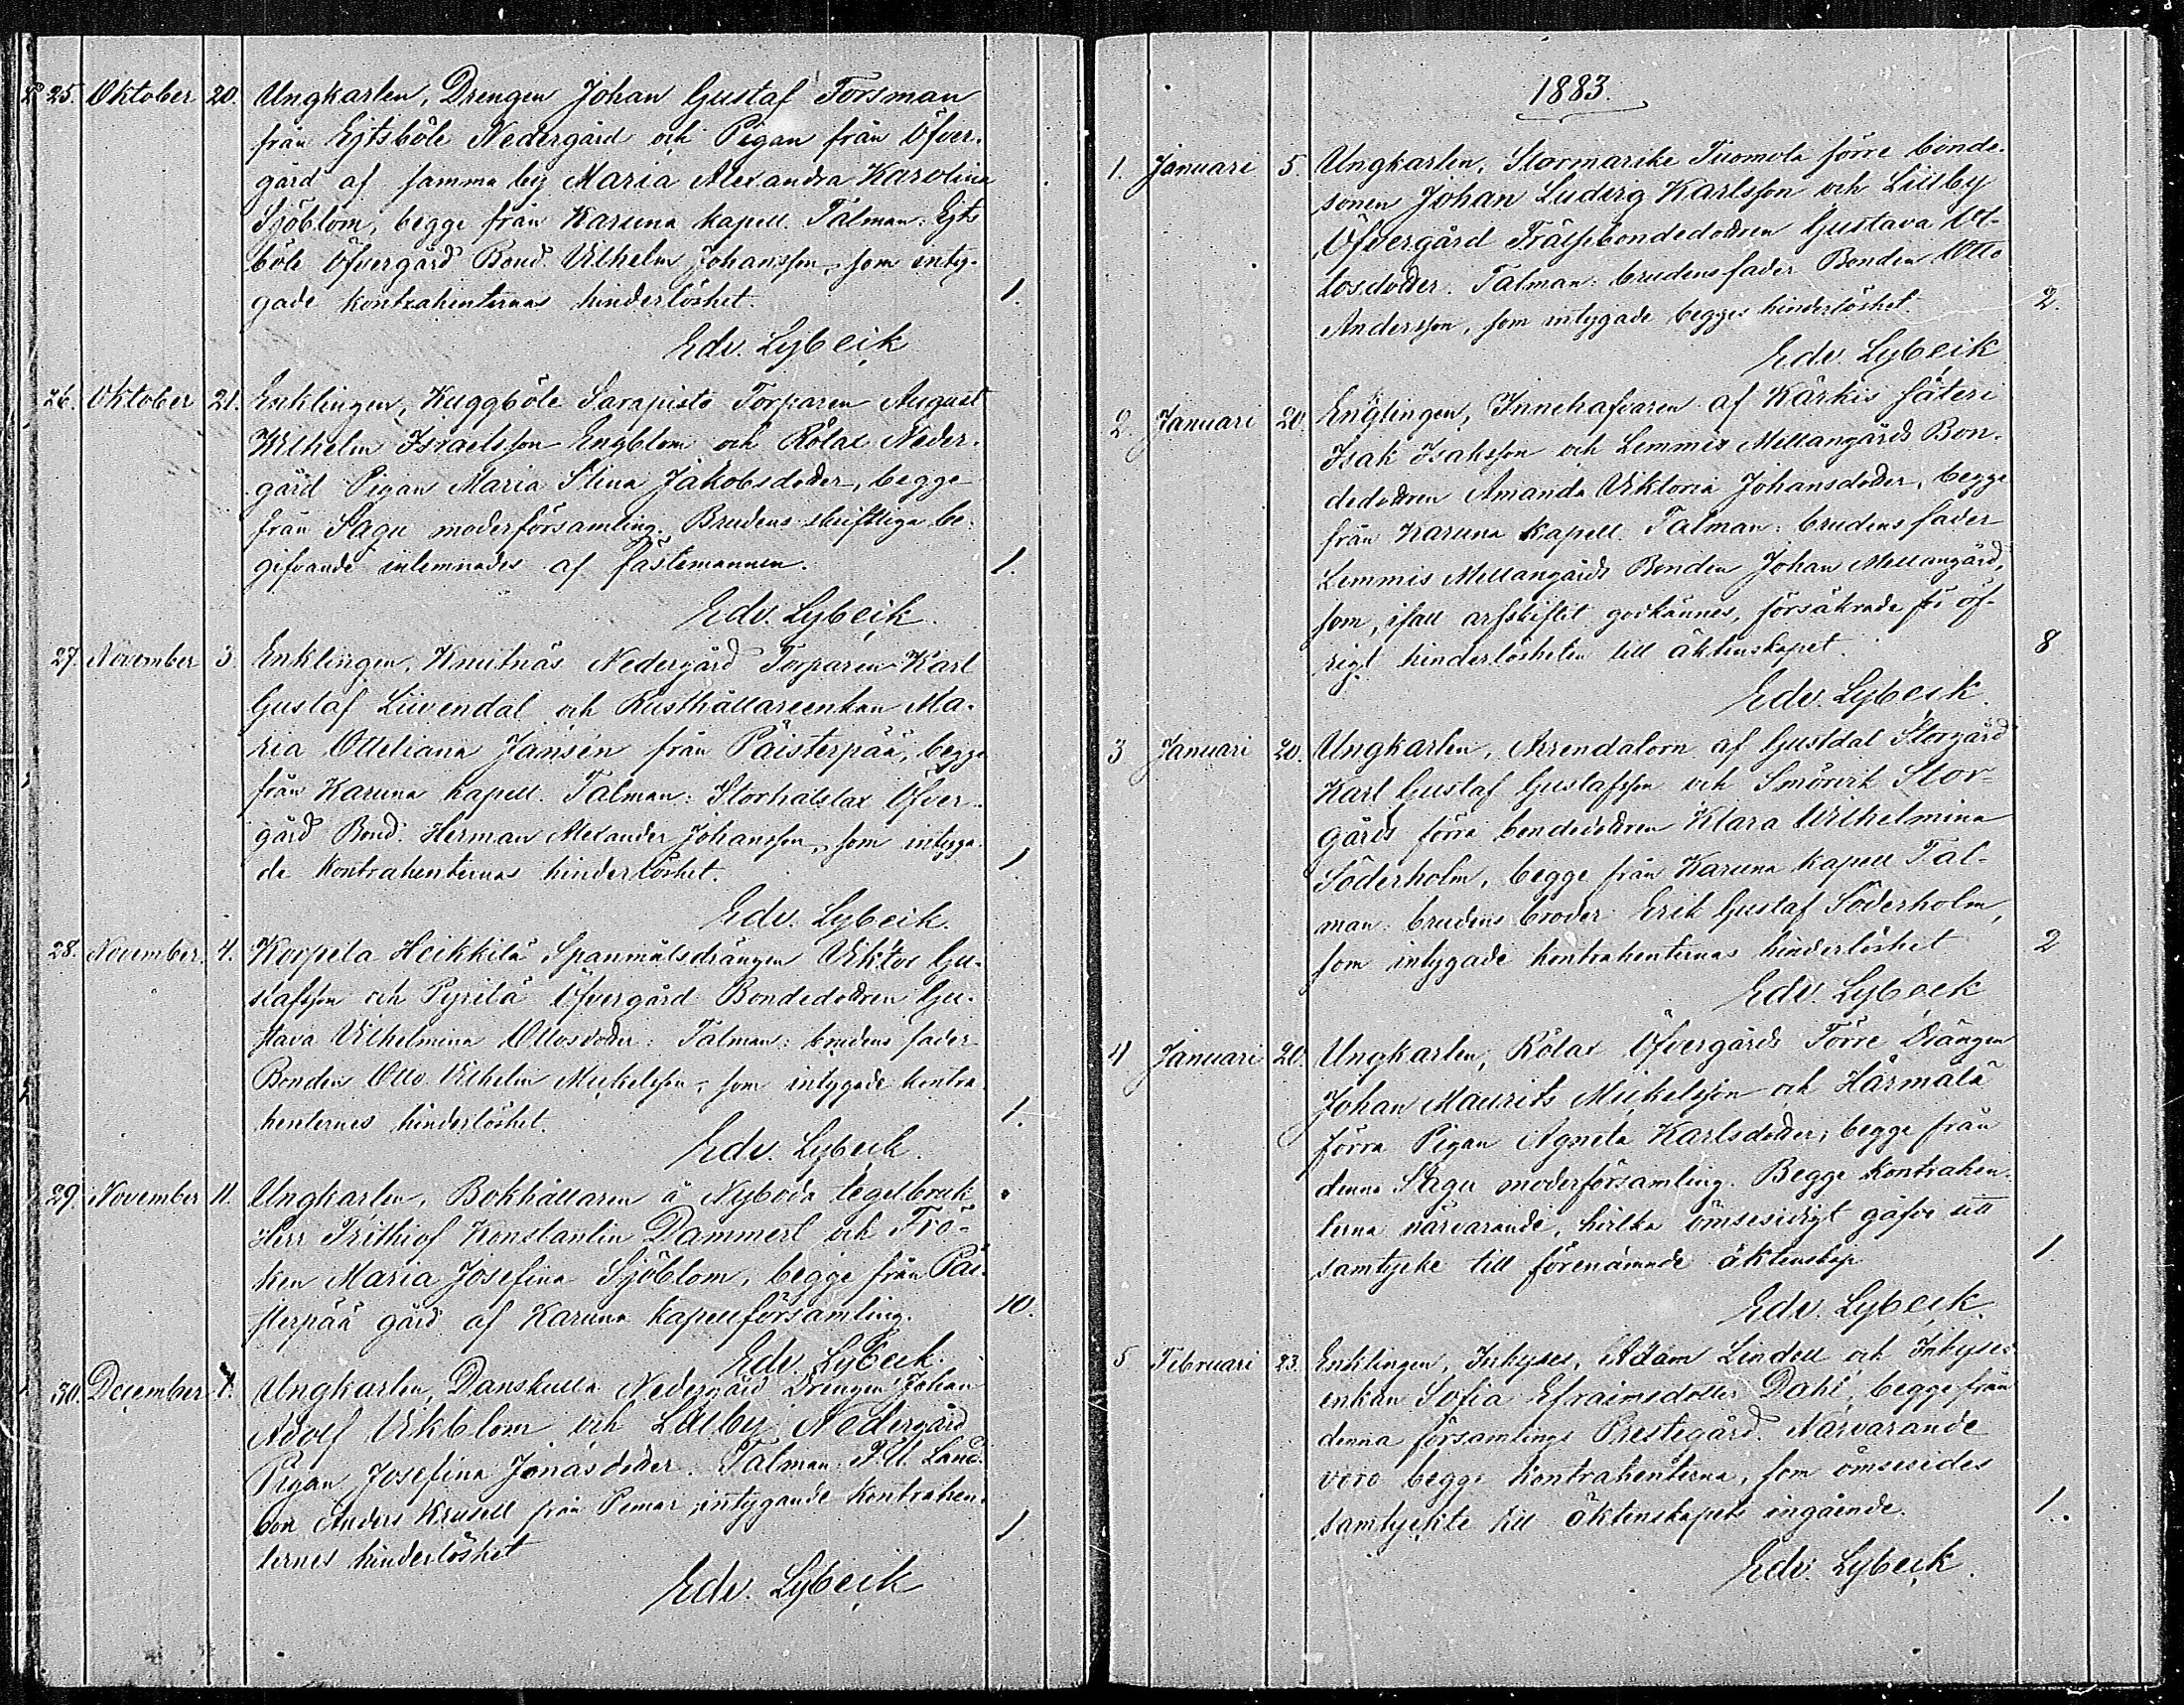 25. Oktober 20. Ungkarlen, Drengen Johan Gustaf Forsman
från Ejtsböle Nedergård och Pigan från Öfver-
gård af samma by Maria Alexandra Karolina
Sjöblom, begge från Karuna kapell. Talman: Ejts
böle Öfvergård Bond. Vilhelm Johansson, som inty-
gade kontrahenternas hinderlöshet. 1.
Edv. Lybeck
26. Oktober 21. Enklingen, Kuggböle Sarapisto Torparen August
Wilhelm Israelsson Engblom och Rölax Neder-
gård Pigan Maria Stina Jakobsdoter, begge
från Sagu moderförsamling. Brudens skriftliga be-
gifvande inlemnades af fästemannen. 1.
Edv. Lybeck.
27. November 3. Enklingen, Knutnäs Nedergård Torparen Karl
Gustaf Liwendal och Rusthållareenkan Ma-
ria Otteliana Jansén från Päisterpää, begge
från Karuna kapell. Talman: Storhalslax Öfver-
gård Bond. Herman Alexander Johansson, som intyga-
de kontrahenternas hinderlöshet. 1.
Edv. Lybeck.
28. November. 4. Korpela Heikkilä Spanmålsdrängen Viktor Gu-
stafsson och Pyrilä Öfvergård Bondedotren Gu-
stava Vilhelmina Ottosdoter. Talman: brudens fader
Bonden Otto Vilhelm Mickelsson, som intygade kontra-
henternes hinderlöshet. 1.
Edv. Lybeck.
29. November 11. Ungkarlen, Bokhållaren å Nyboda tegelbruk
Herr Frithiof Konstantin Dammert och Frö-
ken Maria Josefina Sjöblom, begge från Päi-
sterpää gård af Karuna kapellförsamling. 10.
Edv. Lybeck.
30. December Ungkarlen, Danskulla Nedergård Drengen Johan
Adolf Ekblom och Lillby Nedergård
Pigan Josefina Jonasdoter. Talman: Land-
bon Anders Krusell från Pemar intygande kontrahen-
ternes hinderlöshet 1.
Edv. Lybeck
1883.
1. Januari 5. Ungkarlen, Stormarike Tuomola förre bonde-
sonen Johan Ludvig Karlsson och Lillby
Öfvergård Frälsebondedotren Gustava Ot-
tosdoter. Talman: brudens fader Bonden Otto
Andersson, som intygade begges hinderlöshet. 2.
Edv. Lybeck
2. Januari 20. Englingen, Innehafvaren af Kärkis säteri
Isak Isaksson och Lemmis Mellangårds Bon-
dedotren Amanda Viktoria Johansdoter, begge
från Karuna kapell. Talman: brudens fader
Lemmis Mellangårds Bonden Johan Mellangård,
som, ifall arfskiftet godkännes, försäkrade för öf-
rigt hinderlösheten till äktenskapet. 8
Edv. Lybeck.
3 Januari 20. Ungkarlen, Arrendatorn af Gustdal Storgård
Karl Gustaf Gustafsson och Smörvik Stor-
gårds förra bondedotren Klara Wilhelmina
Söderholm, begge från Karuna kapell Tal-
man: brudens broder Erik Gustaf Söderholm,
som intygade kontrahenternas hinderlöshet 2
Edv. Lybeck
4 Januari 20. Ungkarlen, Rölax Öfvergårds Förre Drängen
Johan Maurits Mickelsson och Härmälä
förra Pigan Agneta Karlsdoter, begge från
denna Sagu moderförsamling. Begge kontrahen-
terna närvarande, hvilka ömsesidigt gåfvo sitt
samtycke till förenämnde äktenskap 1
Edv. Lybeck.
5 Februari 23. Enklingen, Inhyses, Adam Lindell och Inhyses
enkan Sofia Efraimsdotter Dahl, begge från
denna församlings Prestegård. Närvarande
voro begge kontrahenterna, som ömsesides
samtyckte till äktenskapets ingående. 1.
Edv. Lybeck.